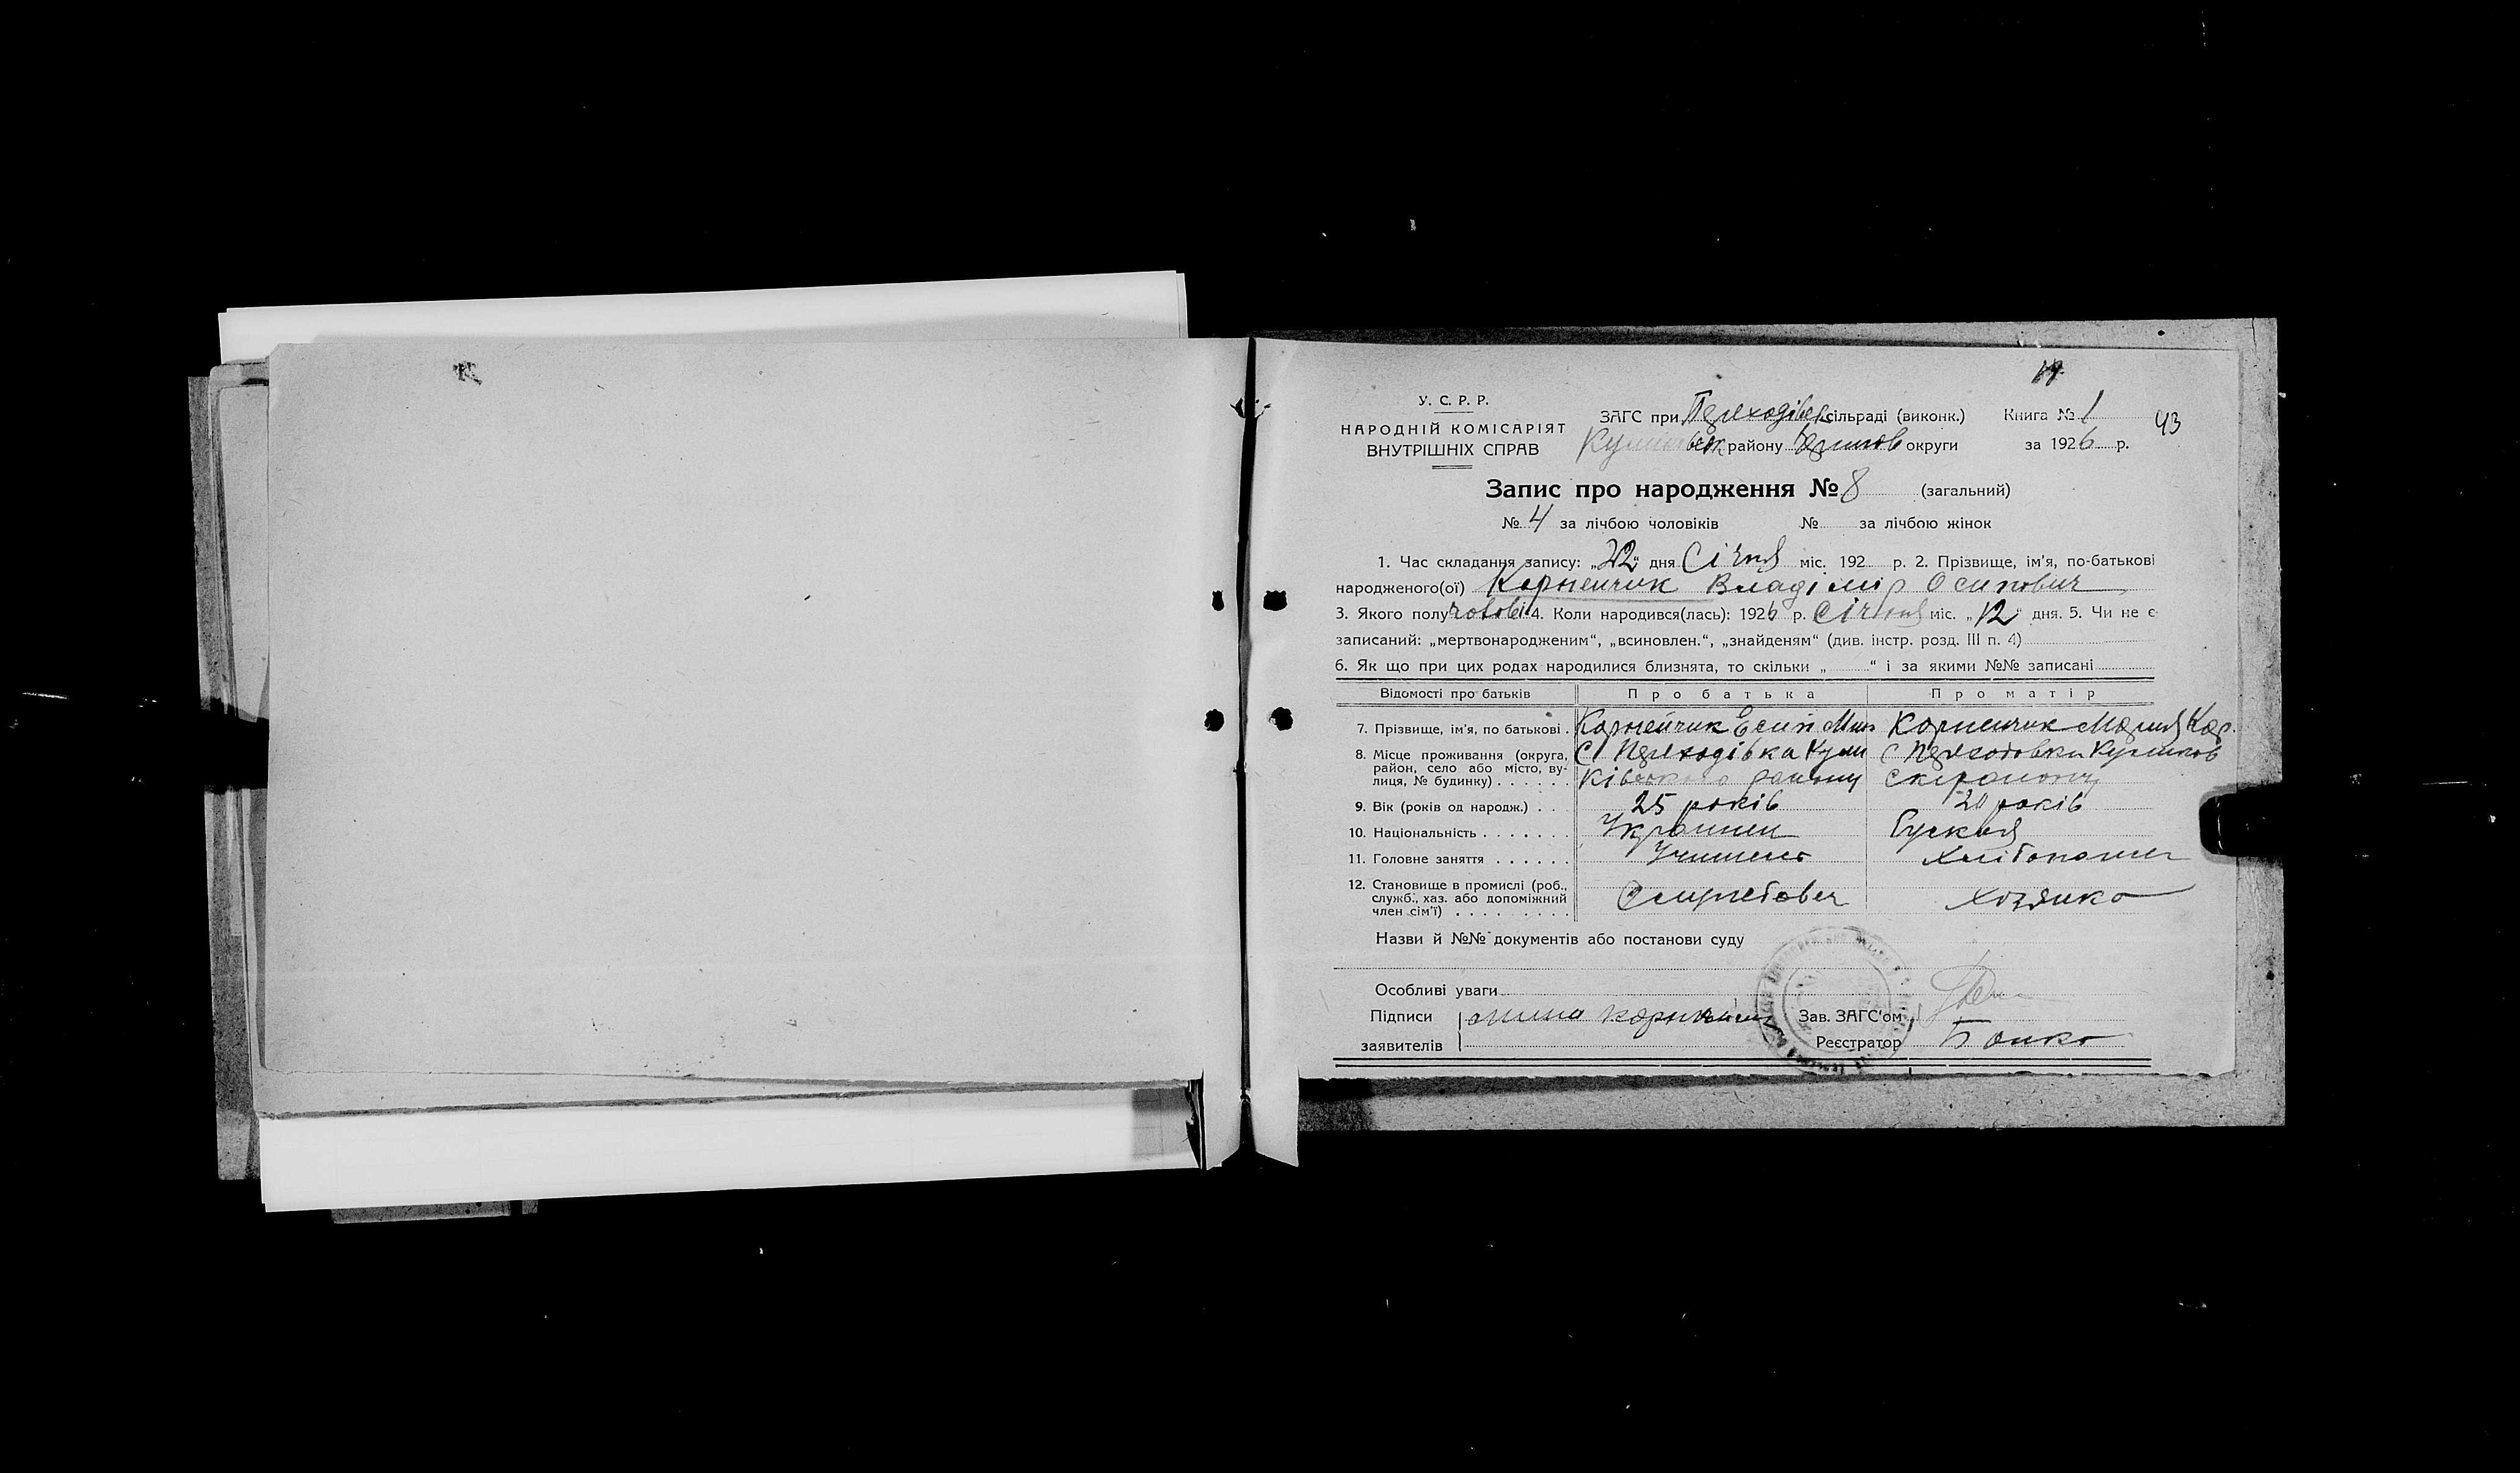 14
У. С. Р. Р.
НАРОДНІЙ КОМІСАРІЯТ
ВНУТРІШНІХ СПРАВ
ЗАГС при Переходівск сільраді (виконк.) Книга № 1
43
району округи за 1926 р.
Запис про народження № 8 (загальний)
№ 4 за лічбою чоловіків № за лічбою жінок
1. Час складання запису: „22“ дня Січня міс. 192 р. 2. Прізвище, ім'я, по-батькові
народженого(ої) Корнейчик Владімір Осипович
3. Якого полу чоловічі 4. Коли народився(лась): 1926 р. Січня міс. „12“ дня. 5. Чи не є
записаний: „мертвонародженим“, „всиновлен.“, „знайденям“ (див. інстр. розд. III п. 4)
6. Як що при цих родах народилися близнята, то скільки „ “ і за якими №№ записані
Відомості про батьків Про батька Про матір
7. Прізвище, ім'я, по батькові . Корнейчик Есип Мих Корнейчик Мария Кар.
8. Місце проживання (округа, С Переходівка Кули С Переходовки Куликов
район, село або місто, ву-
лиця, № будинку) . . . . . . ківського району ск району
9. Вік (років од народж.) . . 25 років 20 років
10. Національність . . . . . . . Украинец Руская
11. Головне заняття . . . . . . Учитель
12. Становище в промислі (роб.,
служб., хаз. або допоміжний
член сім'ї) . . . . . . . . . Хозяйка
Назви й №№ документів або постанови суду
Особливі уваги
Підписи Зав. ЗАГС'ом
заявителів Реєстратор Бойко